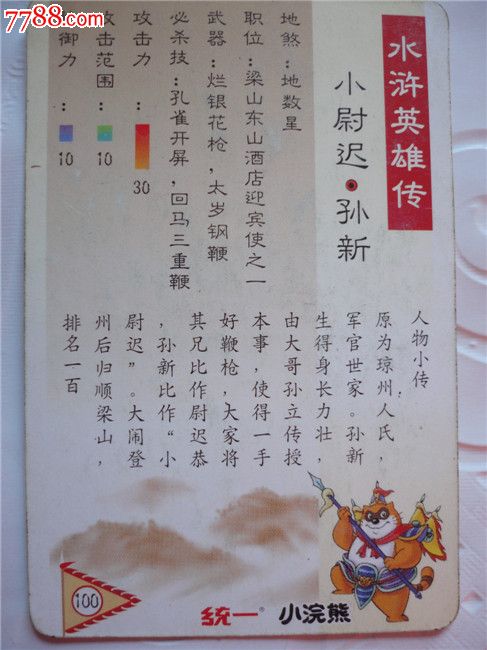 7788.com
水浒英雄传
小尉迟·孙新
地煞：地数星
职位：梁山东山酒店迎宾使之一
武器：烂银花枪，太岁钢鞭
必杀技：孔雀开屏，回马三重鞭
攻击力：30
攻击范围：10
御力：10
人物小传
原为琼州人氏，
军官世家。孙新
生得身长力壮，
由大哥孙立传授
本事，使得一手
好鞭枪，大家将
其兄比作尉迟恭
，孙新比作“小
尉迟”。大闹登
州后归顺梁山，
排名一百
100
统一® 小浣熊